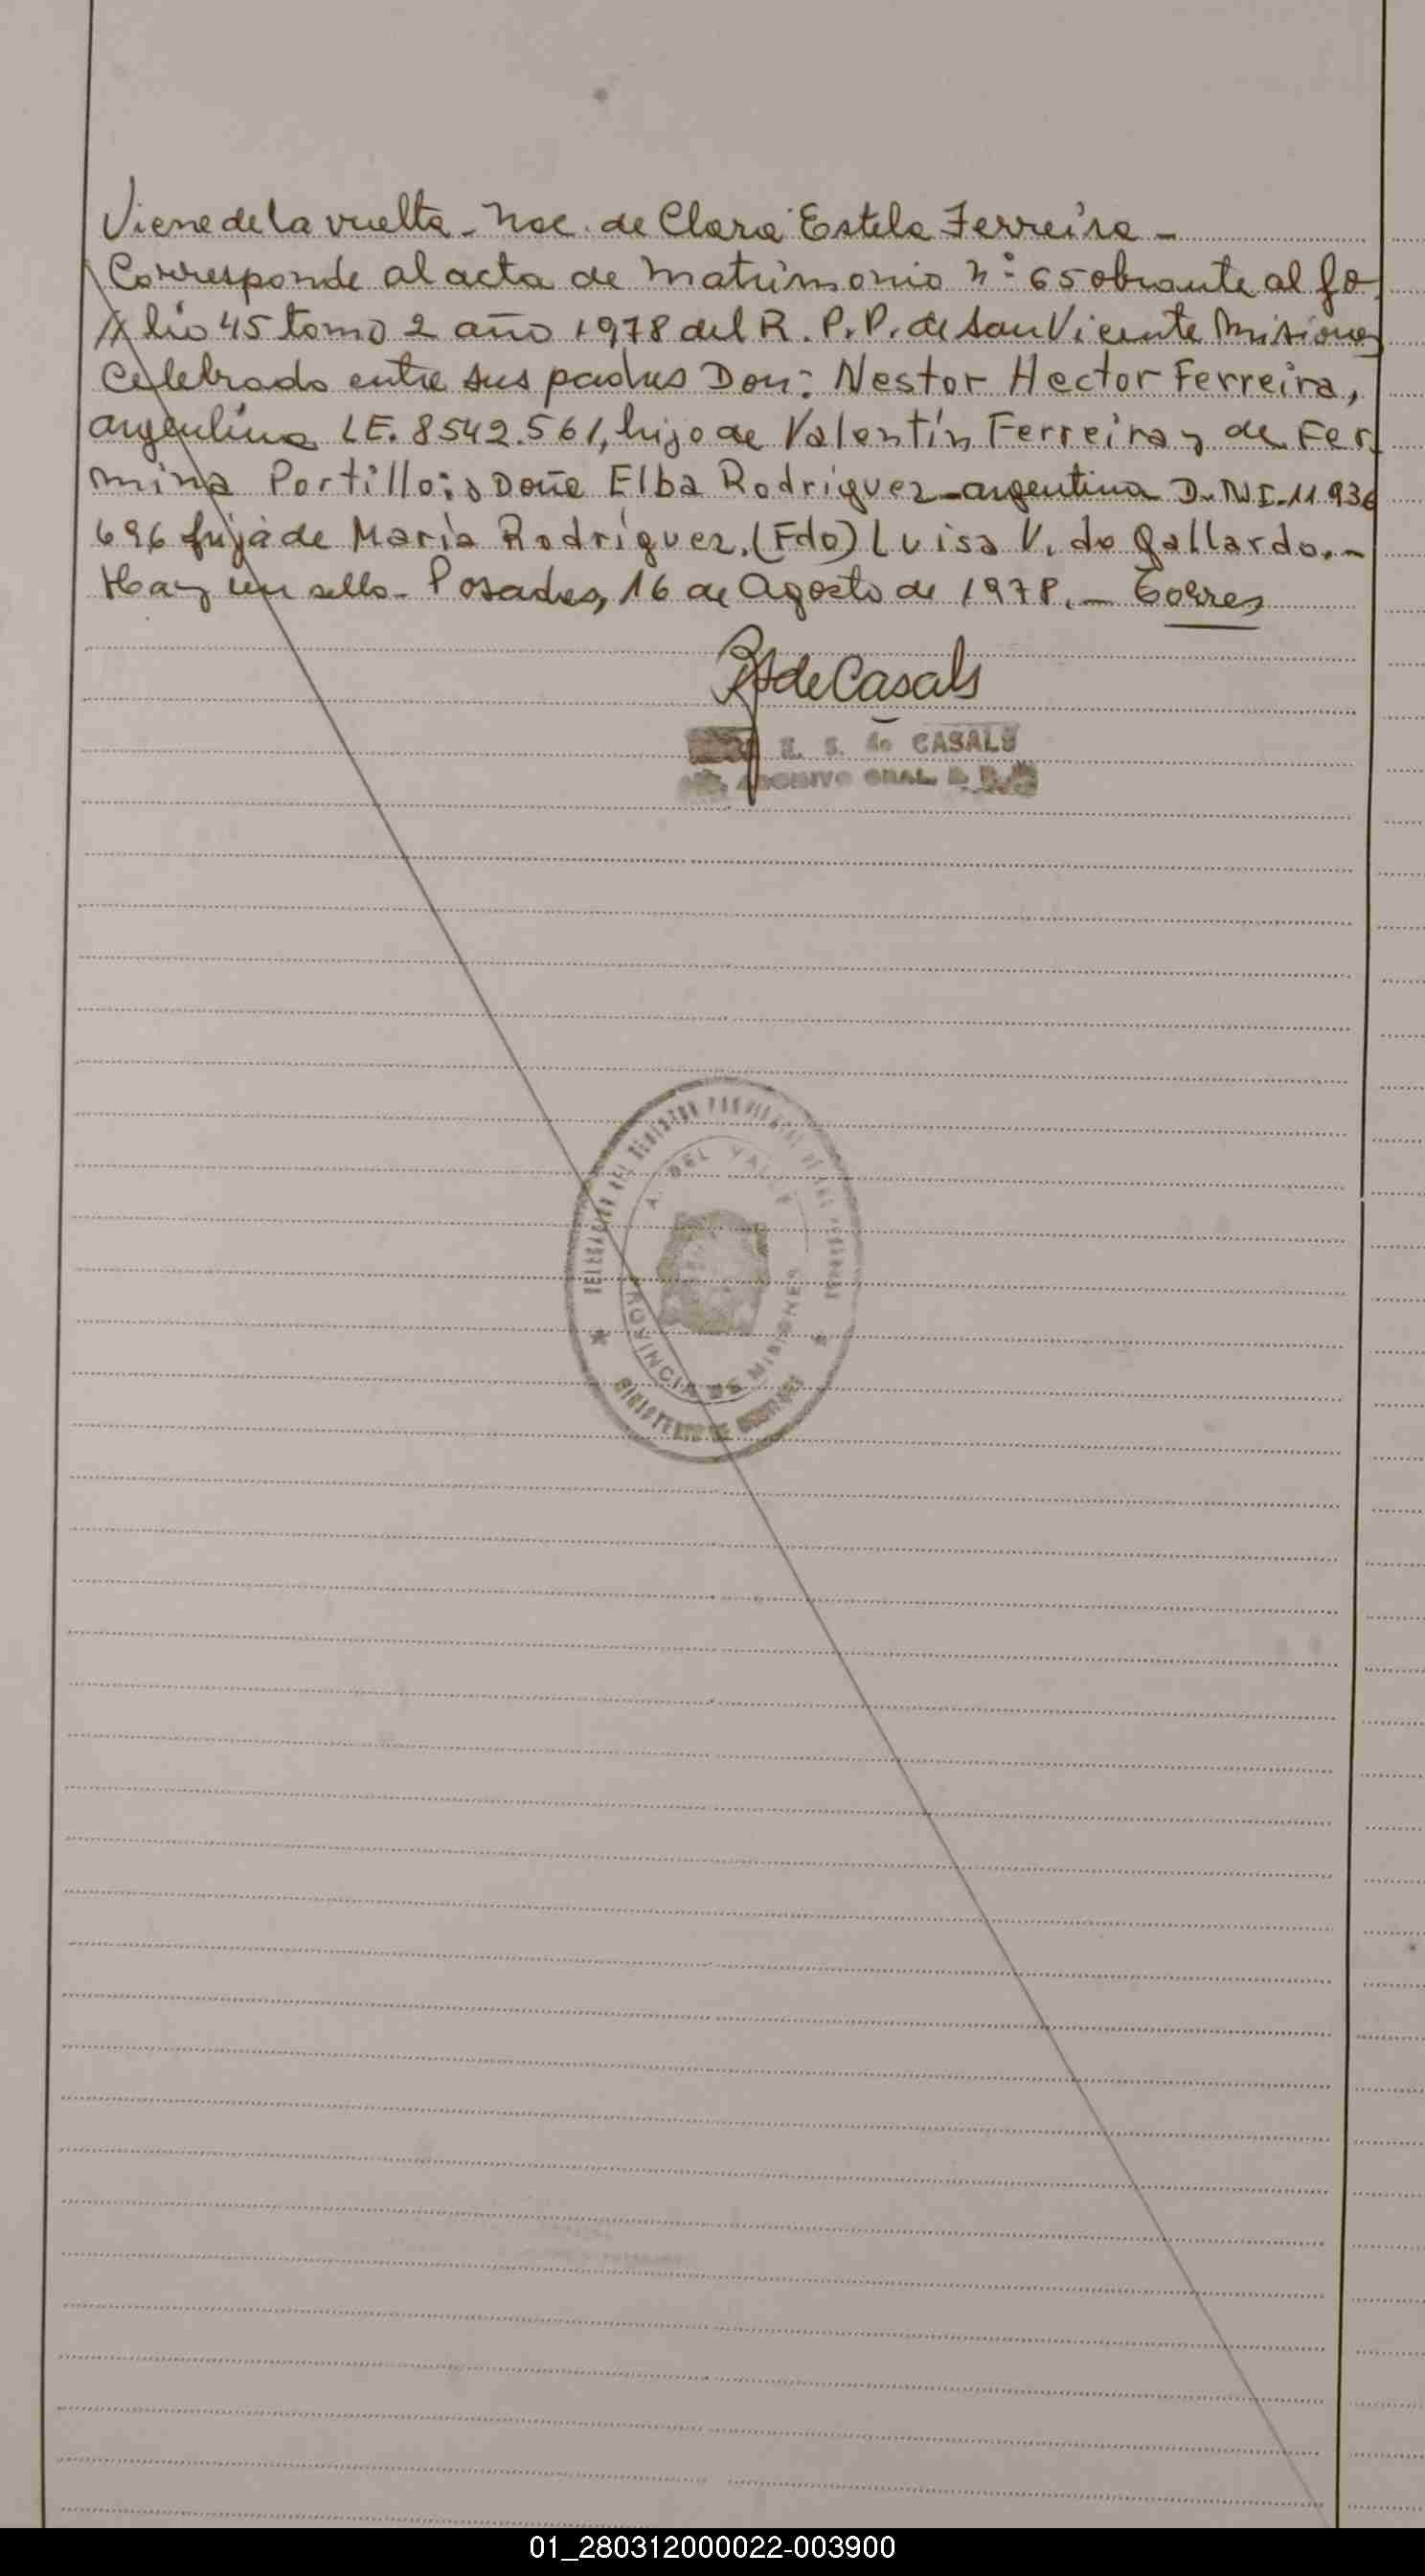 Viene de la vuelta - Nac. de Clara Estela Ferreira -
Corresponde al acta de Matrimonio n° 65 obrante al fo
lio 45 tomo 2 año 1978 del R. P. P. de San Vicente Misiones
celebrado entre sus padres Don: Nestor Hector Ferreira,
argentino L.E. 8542.561, hijo de Valentín Ferreira y de Fer
mina Portillo; y Doña Elba Rodriguez - argentina D.N.I. 11.936
696 hija de María Rodríguez. (Fdo) Luisa V. de Gallardo. -
Hay un sello - Posadas, 16 de Agosto de 1978. - Torres
de Casals
E. S. de CASALS
ARCHIVO GRAL.
DELEGACION DEL REGISTRO PROVINCIAL DE LAS PERSONAS
A. DEL VALLE
PROVINCIA DE MISIONES
MINISTERIO DE
01_280312000022-003900